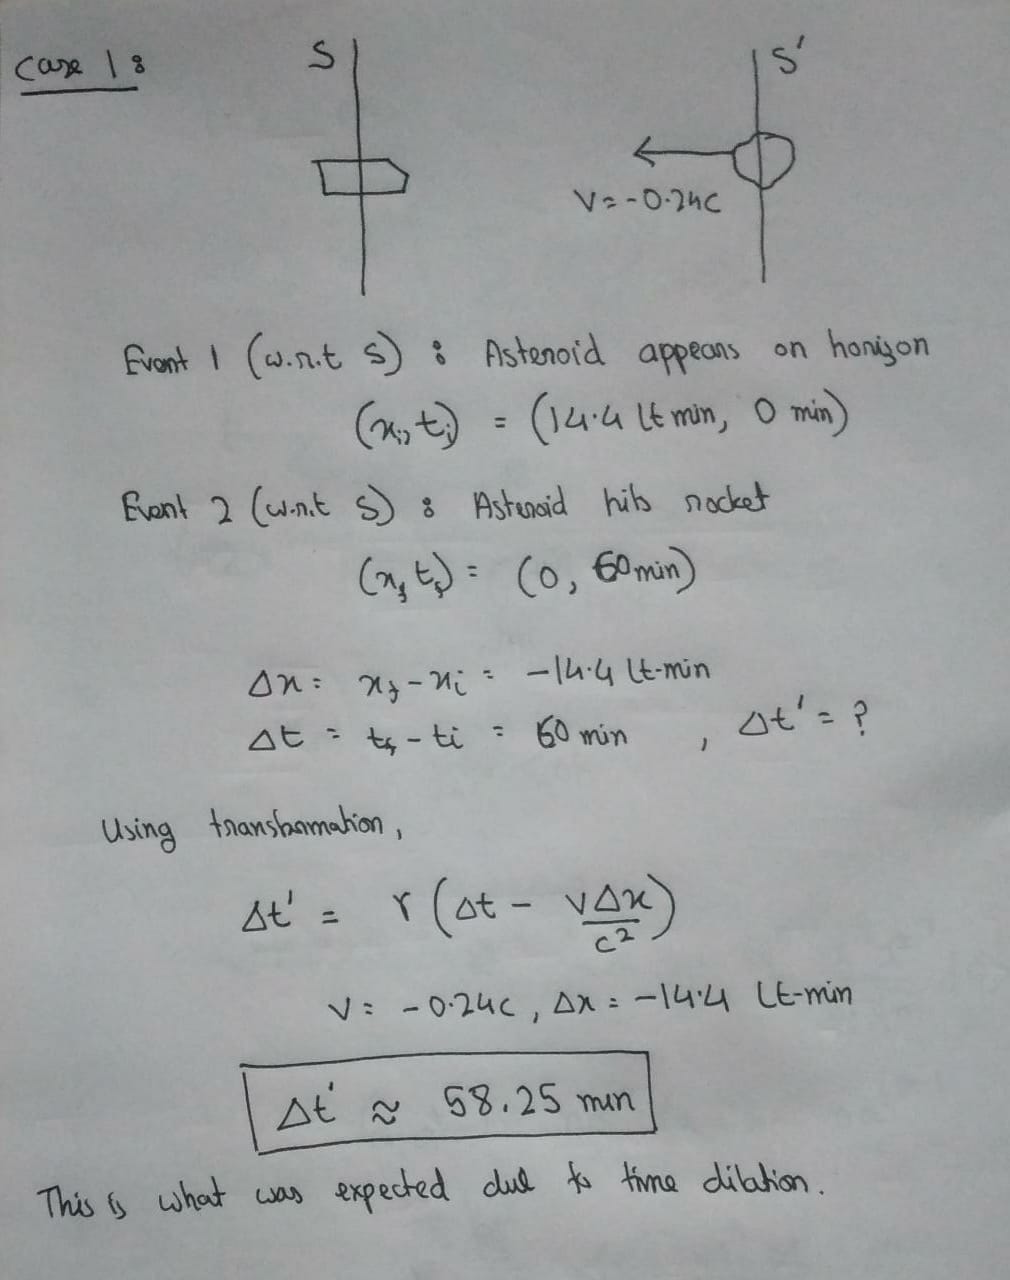 Case 1 :
S
S'
V = -0.24c
Event 1 (w.r.t S) : Asteroid appears on horizon
(xᵢ, tᵢ) = (14.4 lt min, 0 min)
Event 2 (w.r.t S) : Asteroid hits rocket
(x_f, t_f) = (0, 60 min)
Δx = x_f - xᵢ = -14.4 lt-min
Δt = t_f - tᵢ = 60 min , Δt' = ?
Using transformation,
Δt' = γ(Δt - VΔx/c²)
V = -0.24c, Δx = -14.4 lt-min
Δt' ≈ 58.25 min
This is what was expected due to time dilation.